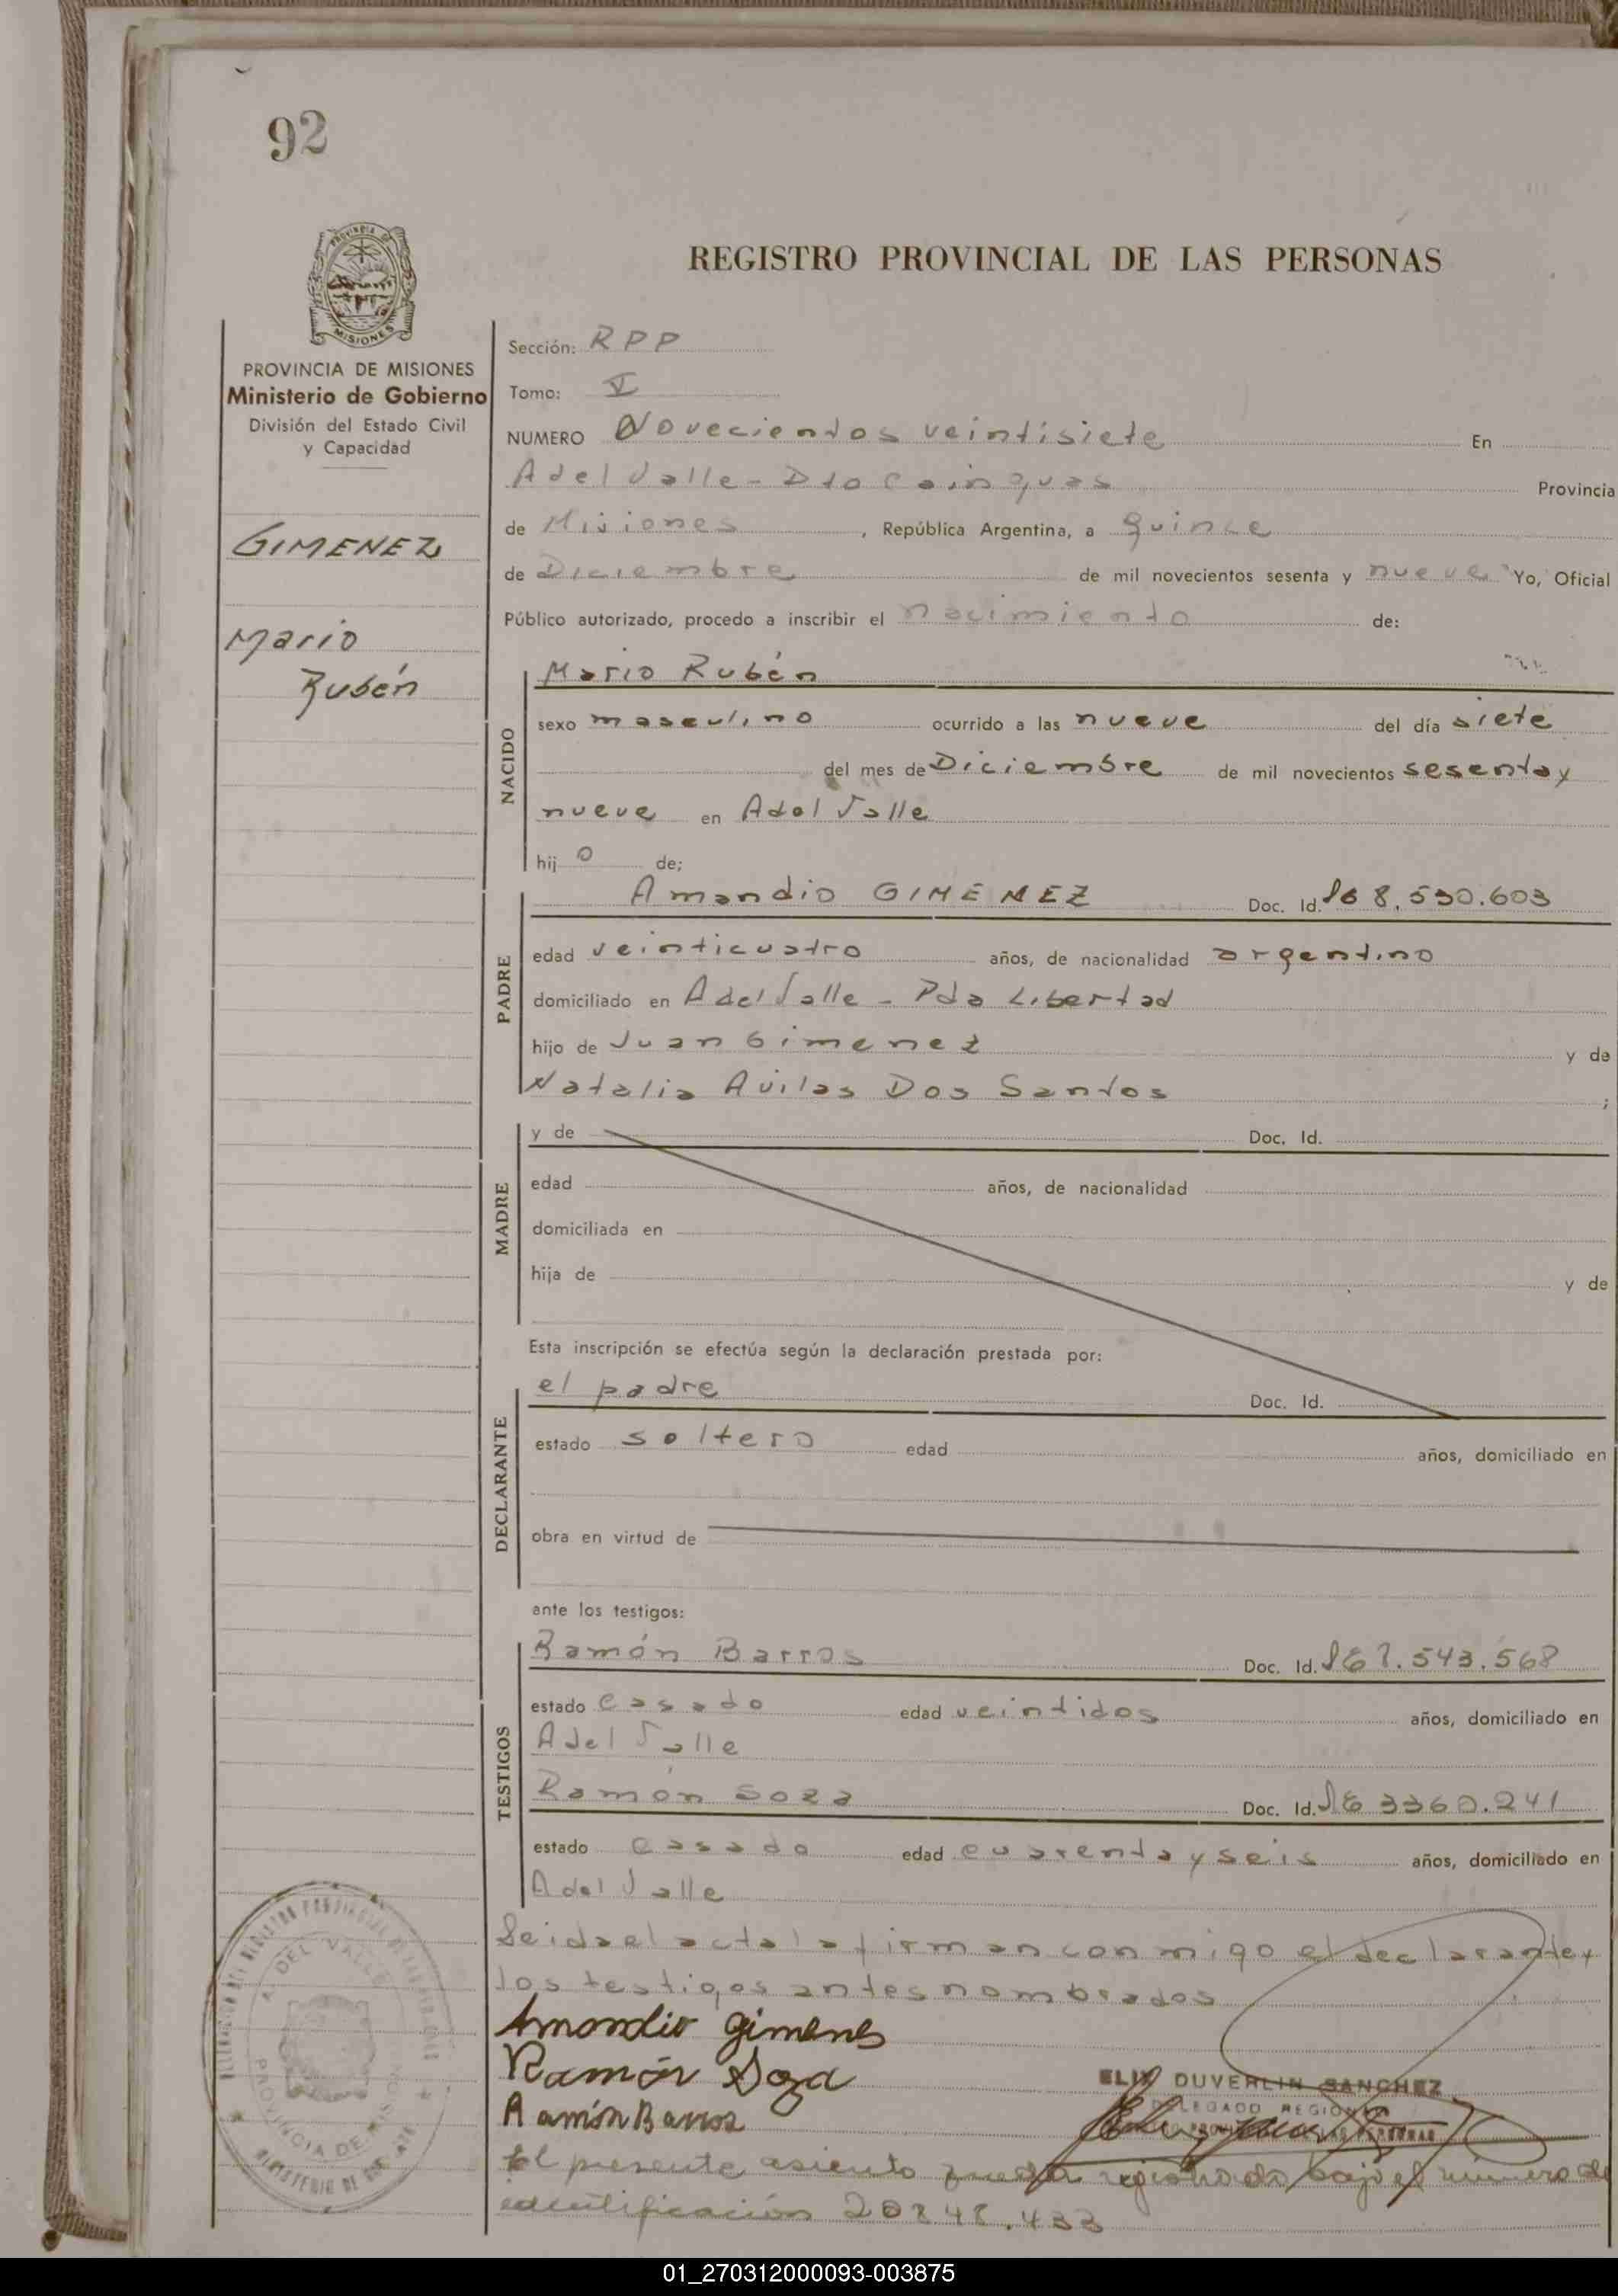 92
PROVINCIA DE
MISIONES
REGISTRO PROVINCIAL DE LAS PERSONAS
PROVINCIA DE MISIONES
Ministerio de Gobierno
División del Estado Civil
y Capacidad
GIMENEZ
Mario
Rubén
Sección: RPP
Tomo: V
NUMERO Noveciendos veintisiete En
A del Valle - Dto Cainguas Provincia
de Misiones, República Argentina, a quince
de Diciembre de mil novecientos sesenta y nueve Yo, Oficial
Público autorizado, procedo a inscribir el nacimiento de:
NACIDO
Mario Rubén
sexo masculino ocurrido a las nueve del día siete
del mes de Diciembre de mil novecientos sesenta y
nueve en A del Valle
hij o de;
PADRE
Amandio GIMENEZ Doc. Id. 8.530.603
edad veinticuatro años, de nacionalidad argentino
domiciliado en A del Valle - Pda Libertad
hijo de Juan Gimenez y de
Natalia Avilas Dos Santos ;
MADRE
y de Doc. Id.
edad años, de nacionalidad
domiciliada en
hija de y de
Esta inscripción se efectúa según la declaración prestada por:
DECLARANTE
el padre Doc. Id.
estado soltero edad años, domiciliado en
obra en virtud de
ante los testigos:
TESTIGOS
Ramón Barros Doc. Id. .543.568
estado casado edad veintidos años, domiciliado en
A del Valle
Ramón Soza Doc. Id. 3360.241
estado casado edad cuarenta y seis años, domiciliado en
A del Valle
Leida el acta la firman con migo el declarante y
los testigos antes nombrados
Amandio Gimenes
Ramón Soza
Ramón Barros
DUVERLIN SANCHEZ
DELEGADO REGIONAL
El presente asiento queda registrado bajo el número de
identificación 20848.433
A. DEL VALLE
PROVINCIA DE MISIONES
01_270312000093-003875